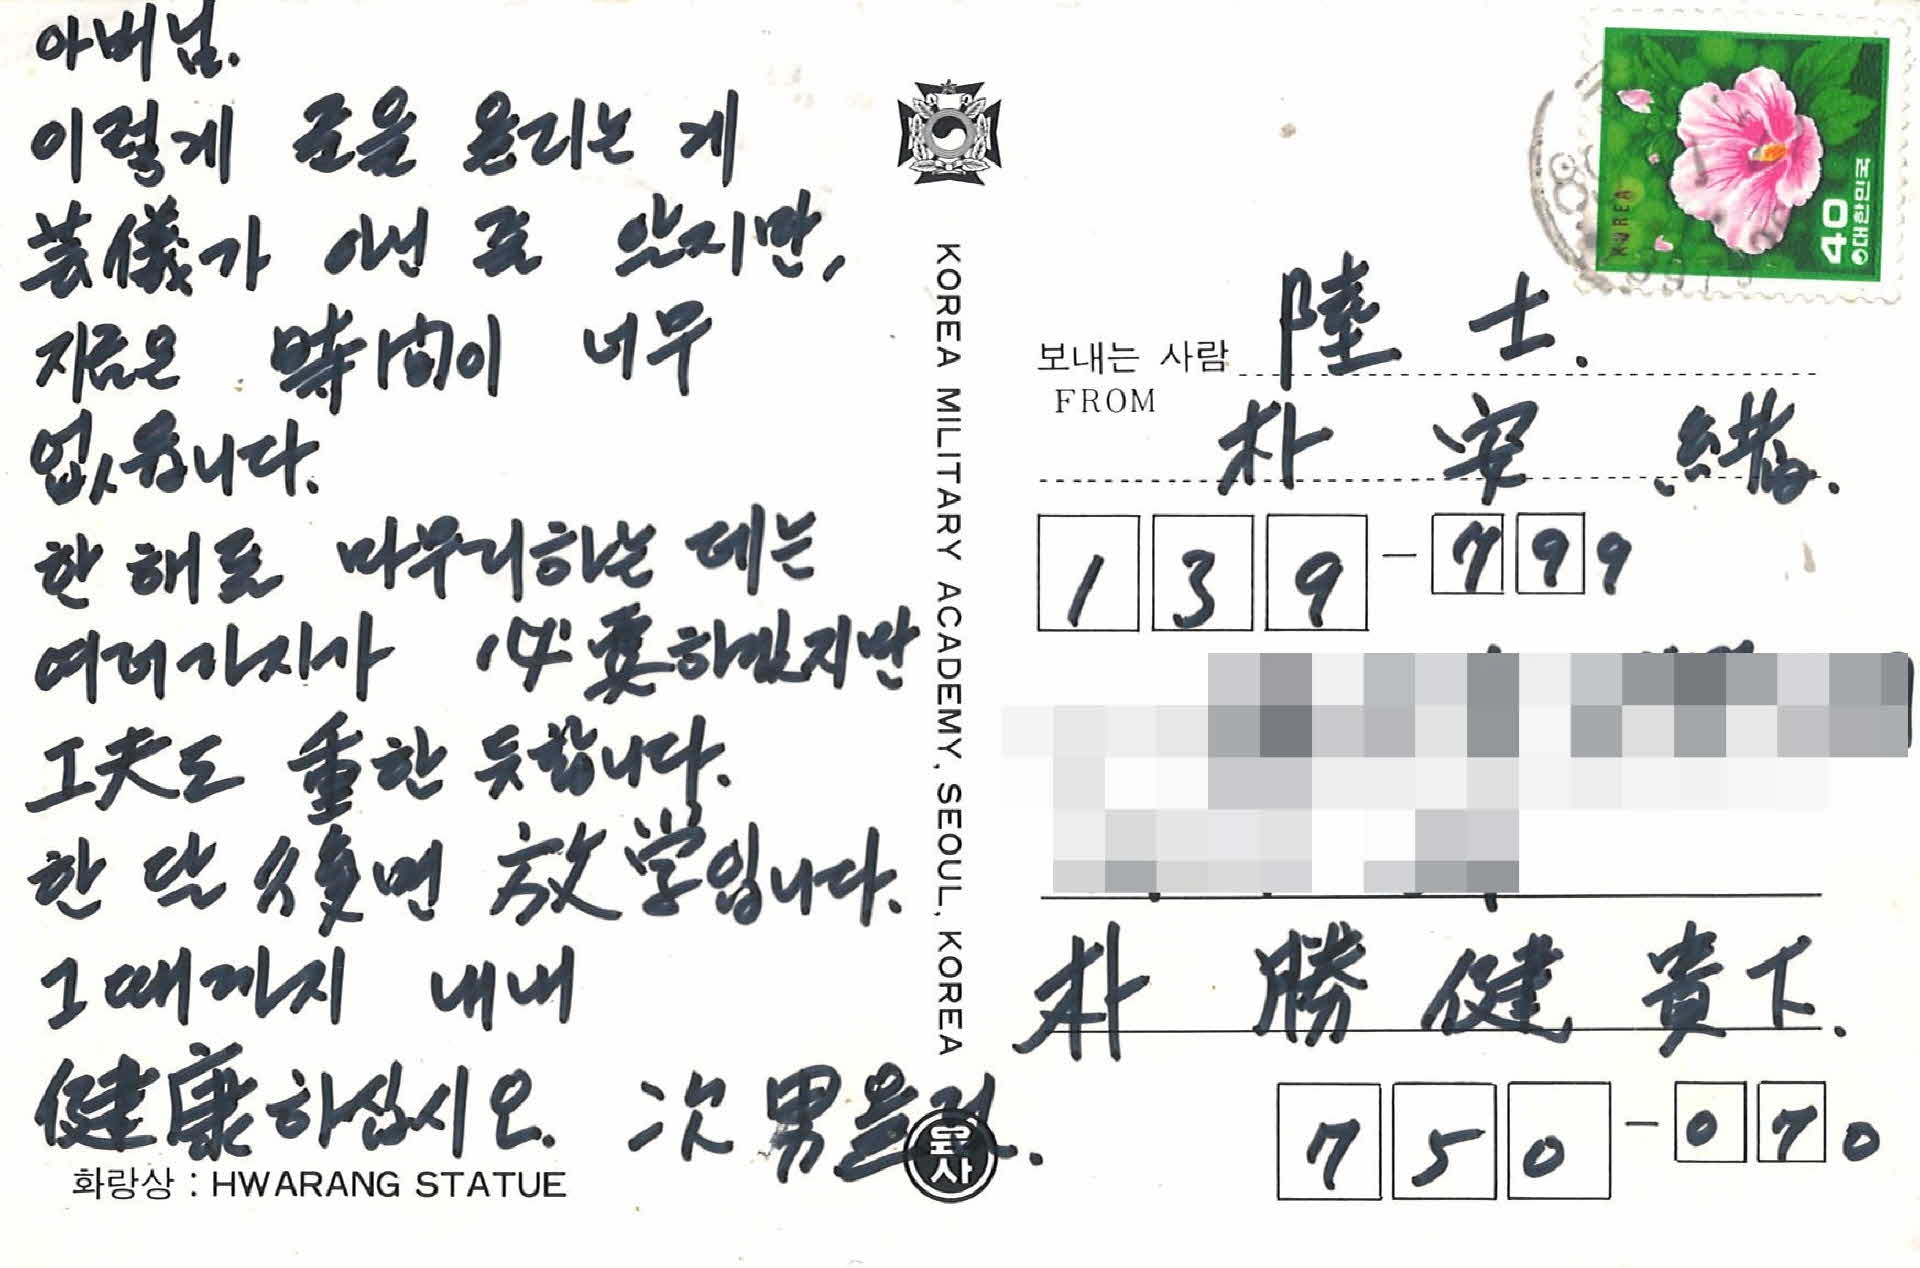 아버님.
이렇게 글을 올리는 게
禮儀가 아닌 줄 알지만,
지금은 時間이 너무
없읍니다.
한 해를 마무리하는 데는
여러가지가 必要하겠지만
工夫도 重한 듯합니다.
한 달 後면 放学입니다.
그때까지 내내
健康하십시오. 次男올림.
화랑상 : HWARANG STATUE
KOREA MILITARY ACADEMY, SEOUL, KOREA
육사
KOREA
40
대한민국
보내는 사람 陸士.
FROM
朴安緖.
139-799
朴勝健貴下.
750-070